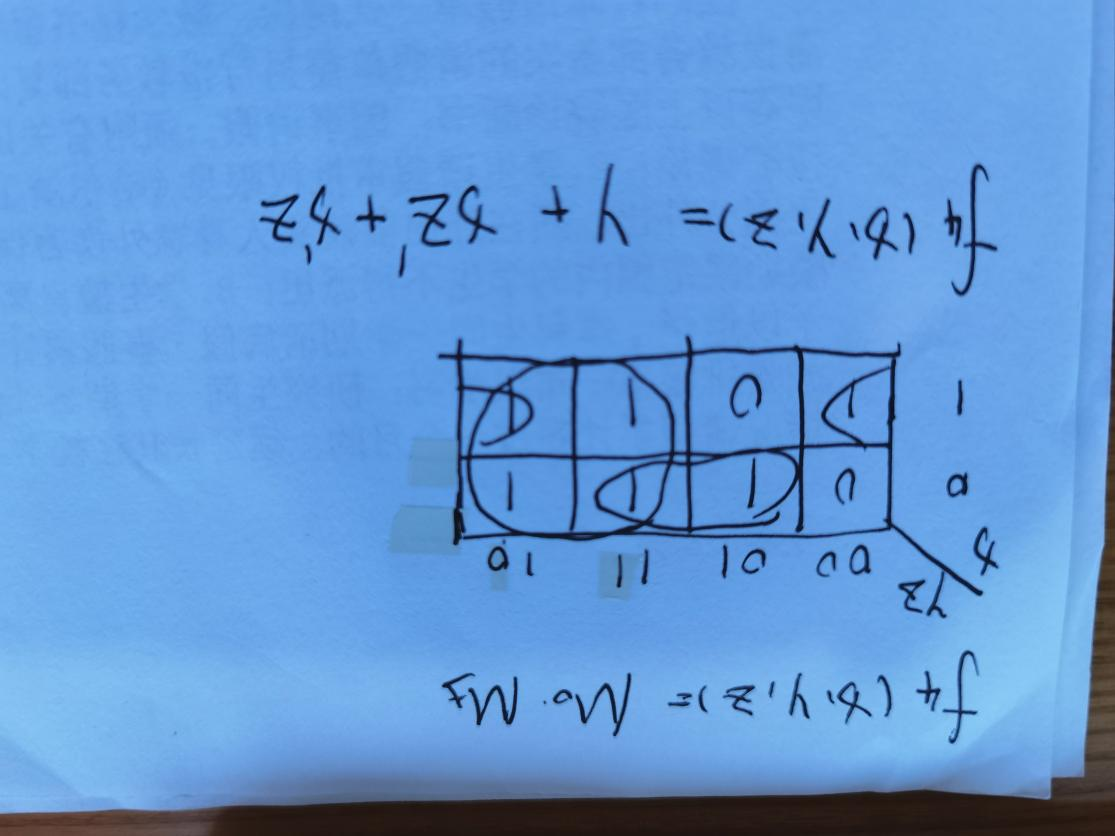 f4 (x, y, z) = M0 · M5
yz
x 00 01 11 10
0 0 1 1 1
1 1 0 1 1
f4 (x, y, z) = y + xz' + x'z